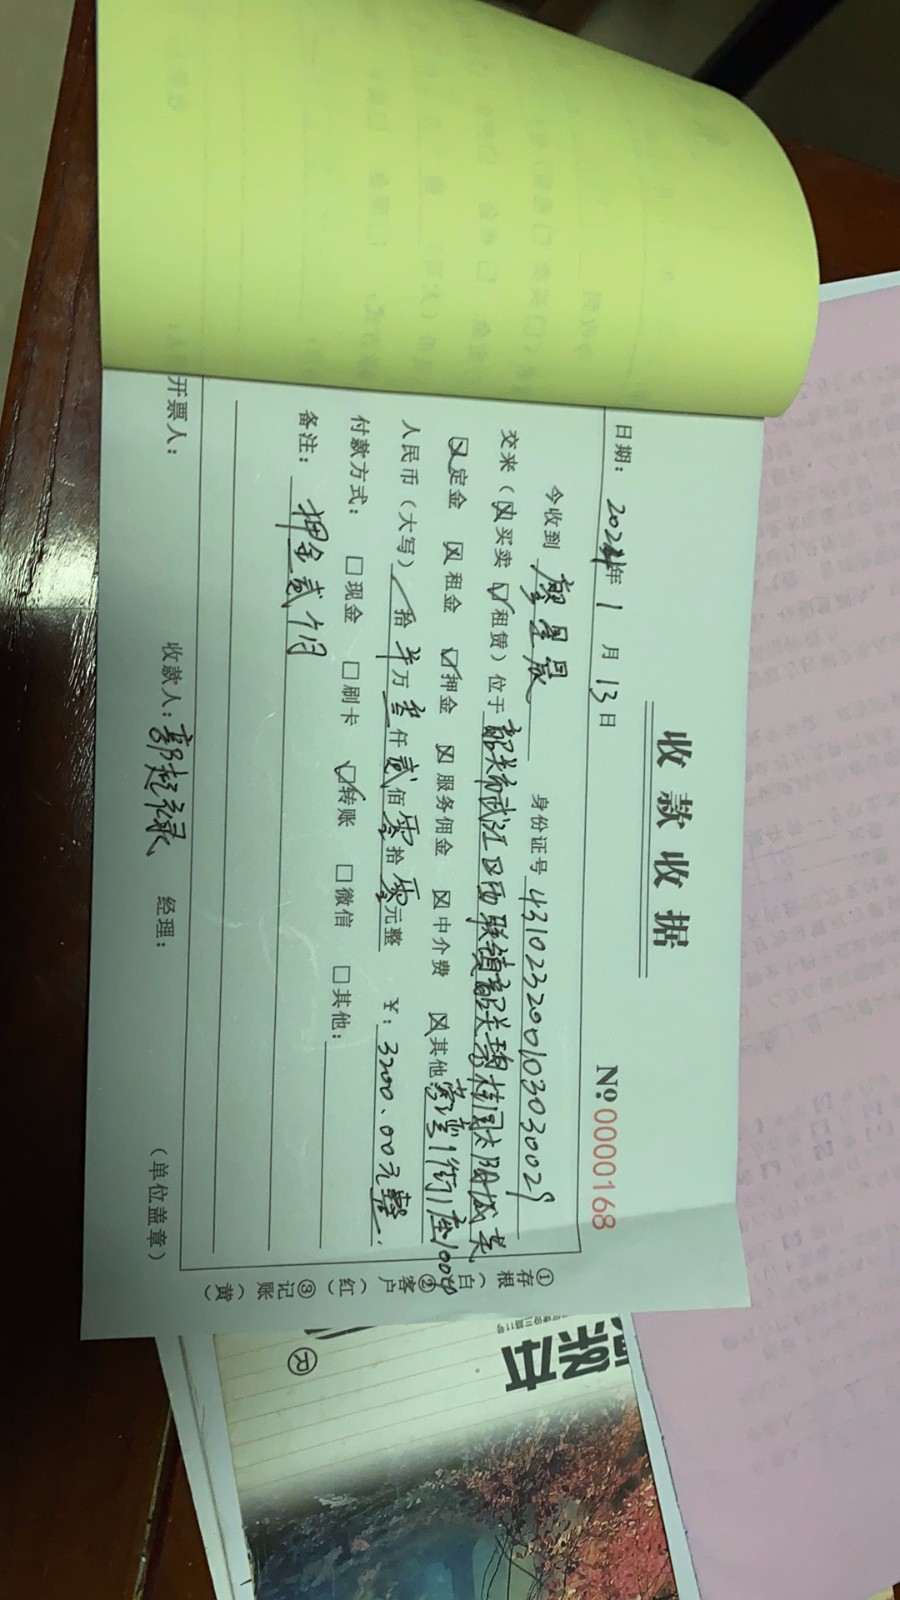 收款收据
№0000168
日期：2024年1月13日
今收到 廖星晟 身份证号 431023200103030029
交来（☒买卖 ☑租赁）位于 韶关市武江区西联镇韶关碧桂园太阳城芙
☒定金 ☒租金 ☑押金 ☒服务佣金 ☒中介费 ☒其他 蓉湾1街1座1004
人民币（大写） 拾 万叁仟贰佰零拾零元整 ￥：3200.00元整
付款方式： □现金 □刷卡 ☑转账 □微信 □其他：
备注：押金贰个月
开票人： 收款人：郭超禄 经理： （单位盖章）
①存根（白）②客户（红）③记账（黄）